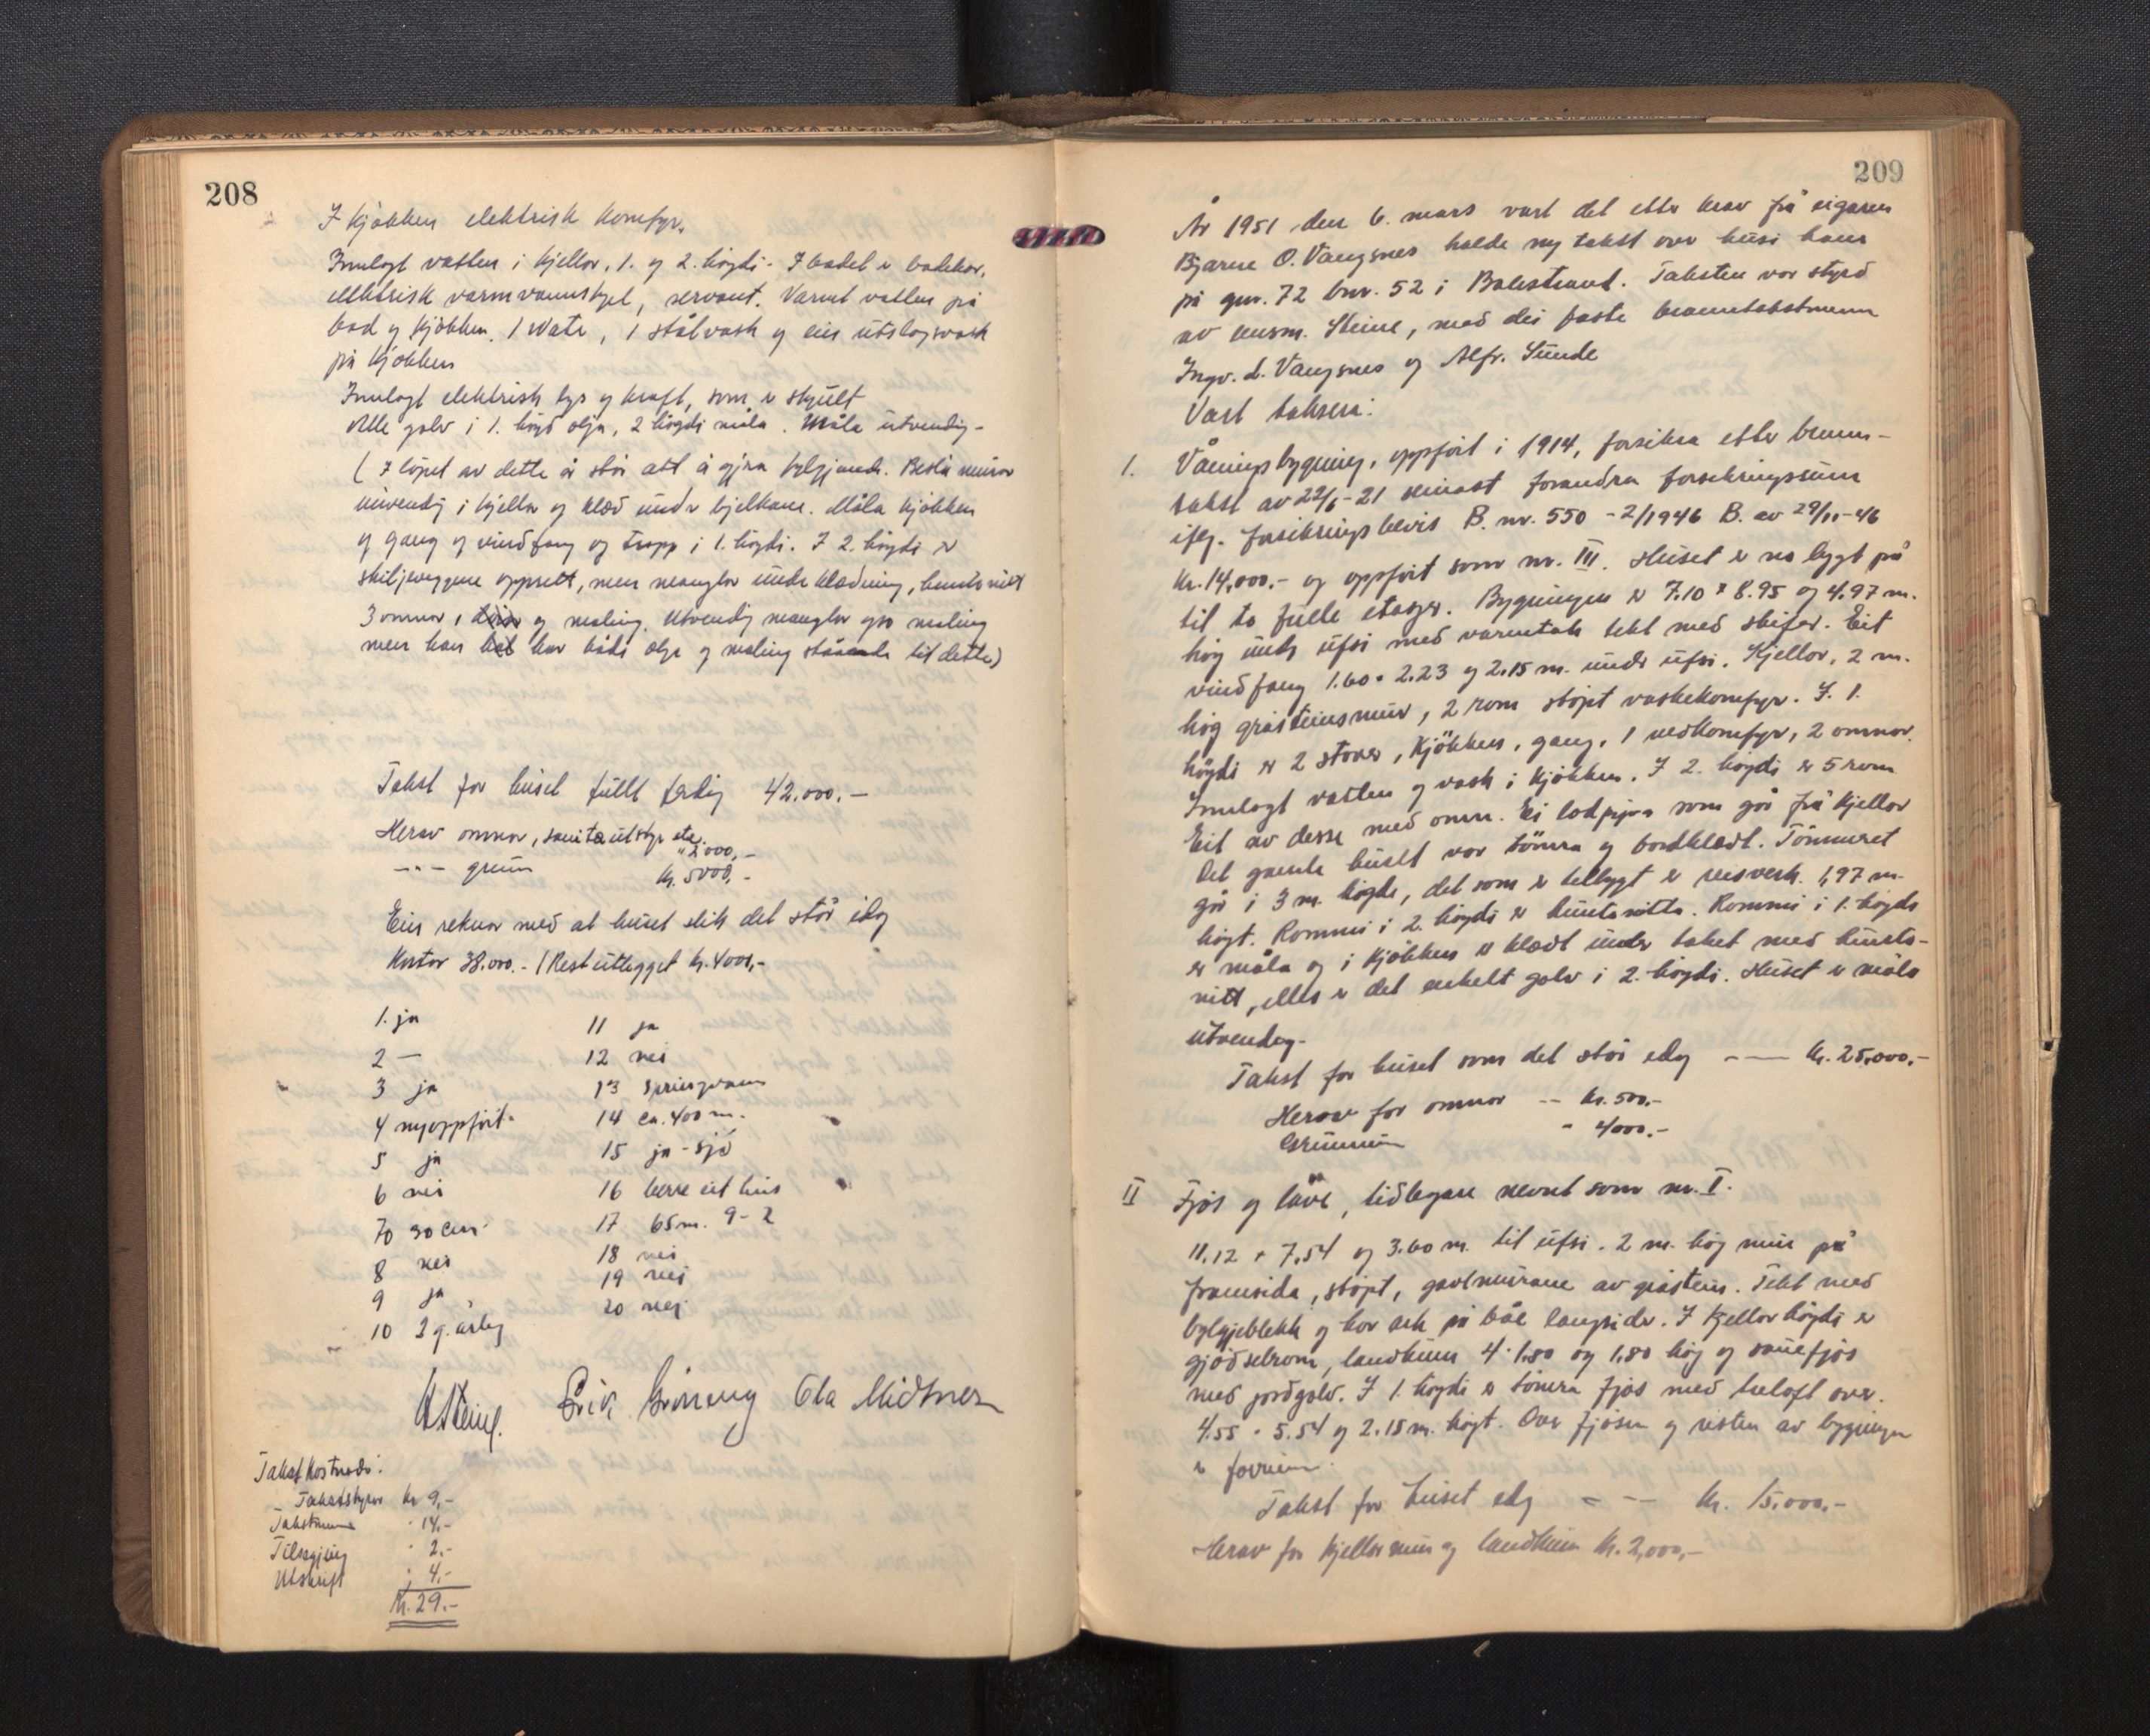 208
I kjökken elektrisk komfyr.
Innlagt vatten i kjellor, 1. og 2. högdi. I badet er badekar,
elektrisk varmvannskjel, servant. Varmt vatten på
bad og kjökken. 1 Watr, 1 stålvask og ein utslagsvask
på kjökken
Innlagt elektrisk lys og kraft, som er skjult
Alle golv i 1. högd olja, 2 högdi måla. Måla utvendig-
(I löpet av dette år står att å gjera fylgjande. Beslå murar
innvendig i kjellar og klæd under bjelkane. Måla kjökken
og gang og vindfang og trapp i 1. högdi. I 2. högdi er
skiljeveggene oppsett, men manglar underklædning, huntonitt
3 omnar, og maling. Utvendig manglar også maling
men han har både olje og maling ståande til dette)
Takst for huset fullt ferdig 42.000.-
Herav omnar, sanitærutstyr etc.
" 2000,-
-"- grunn kr. 5000,-
Ein reknar med at huset slik det står idag
Kostar 38.000.- (Rest utlegget kr. 4000,-
1. ja
2 —
3 ja
4 nyoppfört.
5 ja
6 nei
70 30 cm.
8 nei
9 ja
10 2 g. årleg
11 ja
12 nei
13 springvann
14 ca. 400 m.
15 ja - sjö
16 berre eit hus
17 65 m. 9-2
18 nei
19 nei
20 nei
Ola Midtnes
Takstkostnader:
Takststyrar kr 9,-
Takstmenn " 14.-
Tilsegjing " 2.-
Utskrift " 4.-
Kr. 29.-
209
År 1951 den 6. mars vart det etter krav frå eigaren
Bjarne O. Vangsnes halde ny takst over husi hans
på gnr. 72 bnr. 52 i Balestrand. Taksten var styrd
av lensm. Steine, med dei faste branntakstmenn
Ingv. L. Vangsnes og Alfr. Sunde
Vart taksera:
1. Våningsbygning, oppfört i 1914, forsikra etter brann-
takst av 22/6-21 seinast forandra forsikringssum
iflg. forsikringsbevis B. nr. 550 - 2/1946 B. av 29/11-46
kr. 14,000.- og oppfört som nr. III. Huset er no bygt på
til to fulle etasjer. Bygningen er 7.10 x 8.95 og 4.97 m.
høg under ufsi med varmtak tekt med skifer. Eit
vindfang 1.60 x 2.23 og 2.15 m. under ufsi. Kjellor, 2 m.
høg gråsteinsmur, 2 rom støpt vaskekomfyr. I. 1.
högdi er 2 stover, kjökken, gang, 1 vedkomfyr, 2 omnar.
Innlagt vatten og vask i kjökken. I 2. högdi er 5 rom
Eit av desse med omn. Ei lodpipa som går frå kjellor
Det gamle huset var tömra og bordklædt. Tömmeret
går i 3 m. högde, det som er tilbygt er reisverk. 1,97 m.
högt. Rommi i 2. högdi er huntonitta. Rommi i 1. högdi
er måla og i kjökken er klædt under taket med hunto-
nitt, elles er det enkelt golv i 2. högdi. Huset er måla
utvendig.
Takst for huset som det står idag -- — kr. 25,000,-
Herav for omnar -- kr. 500.-
Grunnmur " 4000.-
II Fjos og löve, tidlegare nevnt som nr. I.
11.12 x 7.54 og 3.60 m. til ufsi. 2 m. høg mur på
framsida, støpt, gavlmurane av gråstein. Tekt med
bylgjeblekk og har ark på båe langsider. I kjellarhögdi er
gjödselrom, landkum 4 x 1.80 og 1,80 høg og sauefjos
med jordgolv. I 1. högdi er tömra fjos med treloft over.
4.55 x 5.54 og 2.15 m. högt. Over fjosen og resten av bygningen
er forrum.
Takst for huset idag - -- kr. 15.000,-
herav for kjellarmur og landkum kr. 2,000,-